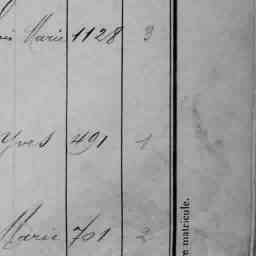 Marie 1128 3
Yves 491 1
Marie 701 2
matricule.